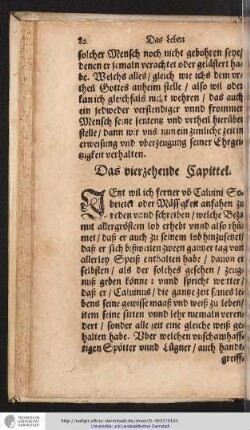 82 Das Leben
solcher Mensch noch nicht gebohren seye/
denen er jemaln verachtet oder gelästert ha-
be. Welchs alles/ gleich wie ichs dem vr-
theil Gottes anheim stelle / also wil oder
kan ich gleichfals nicht wehren / das auch
ein jedweder verständiger vnnd frommer
Mensch seine sententz vnd vrtheil hierüber
stelle / dann wir vns nun ein zimliche zeit in
erweisung vnd vberzeugung seiner Ehrgei-
tzigkeit verhalten.
Das vierzehende Capittel.
JEnt wil ich ferner võ Caluini So-
brietet oder Mässigkeit anfahen zu
reden vnnd schreiben / welche Beza
mit allergröstem lob erhebt vnnd also rhü-
met / daß er auch zu seinem lob hinzusetzet /
daß er sich bißweilen zween gantzer tag von
allerley Speiß enthalten habe / dauon er
selbsten / als der solches gesehen / zeug-
nuß geben könne: vnnd spricht weitter /
daß er / Caluinus / die gantze zeit seines le-
bens seine gewisse maaß vnd weiß zu leben /
item seine sitten vnnd lehr niemaln veren-
dert / sonder alle zeit eine gleiche weiß ge-
halten habe. Vber welchen vnschamhaff-
tigen Spötter vnnd Lügner / auch handt-
greiff-
Universitäts- und Landesbibliothek Darmstadt